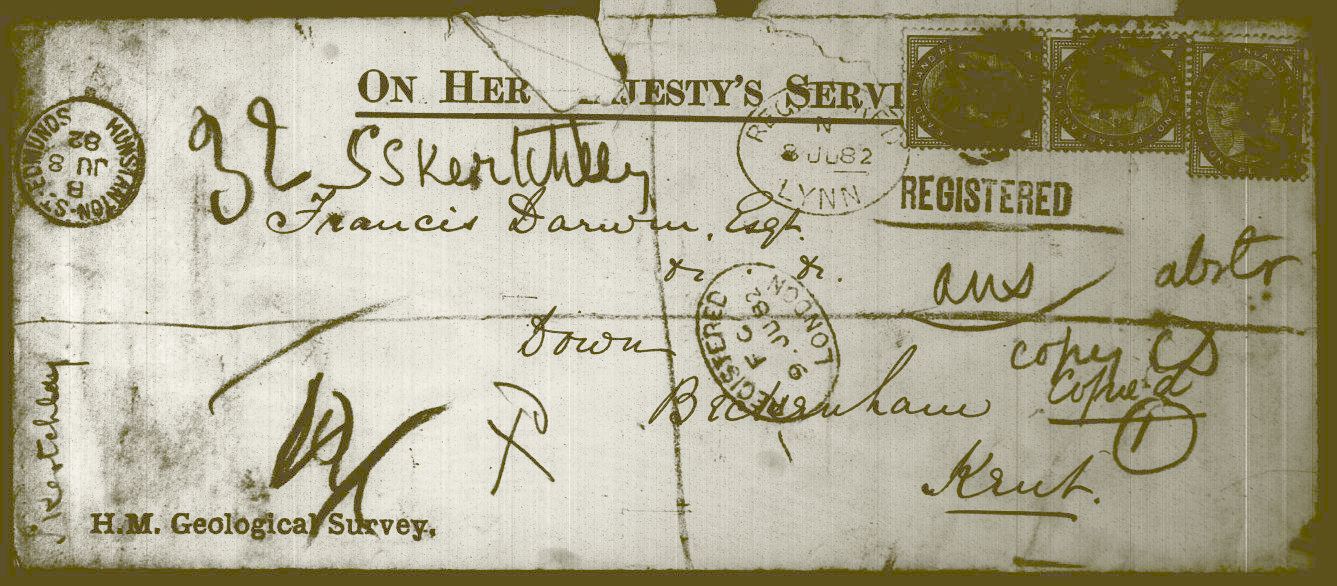 ON HER JESTY'S SERVI
HUNSTANTON-ST-EDMUNDS
B
JU 8
82
SSKertchley
8 JU 82
LYNN
REGISTERED
Francis Darwin, Esqr.
&c. &c.
ans
abstr
REGISTERED
LONDON
F C
9 JU 82
Down
copy CD
Copied
1
Beckenham
Kent.
Skertchley
H.M. Geological Survey.